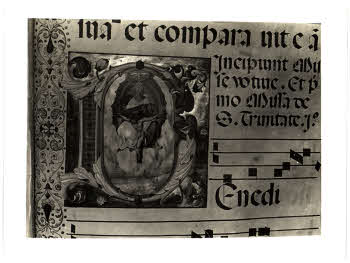 ma et compara uit e ā
Incipiunt Mis
se votiue. Et p̄
mo Missa de
S. Trinitate. Jō.
enedi